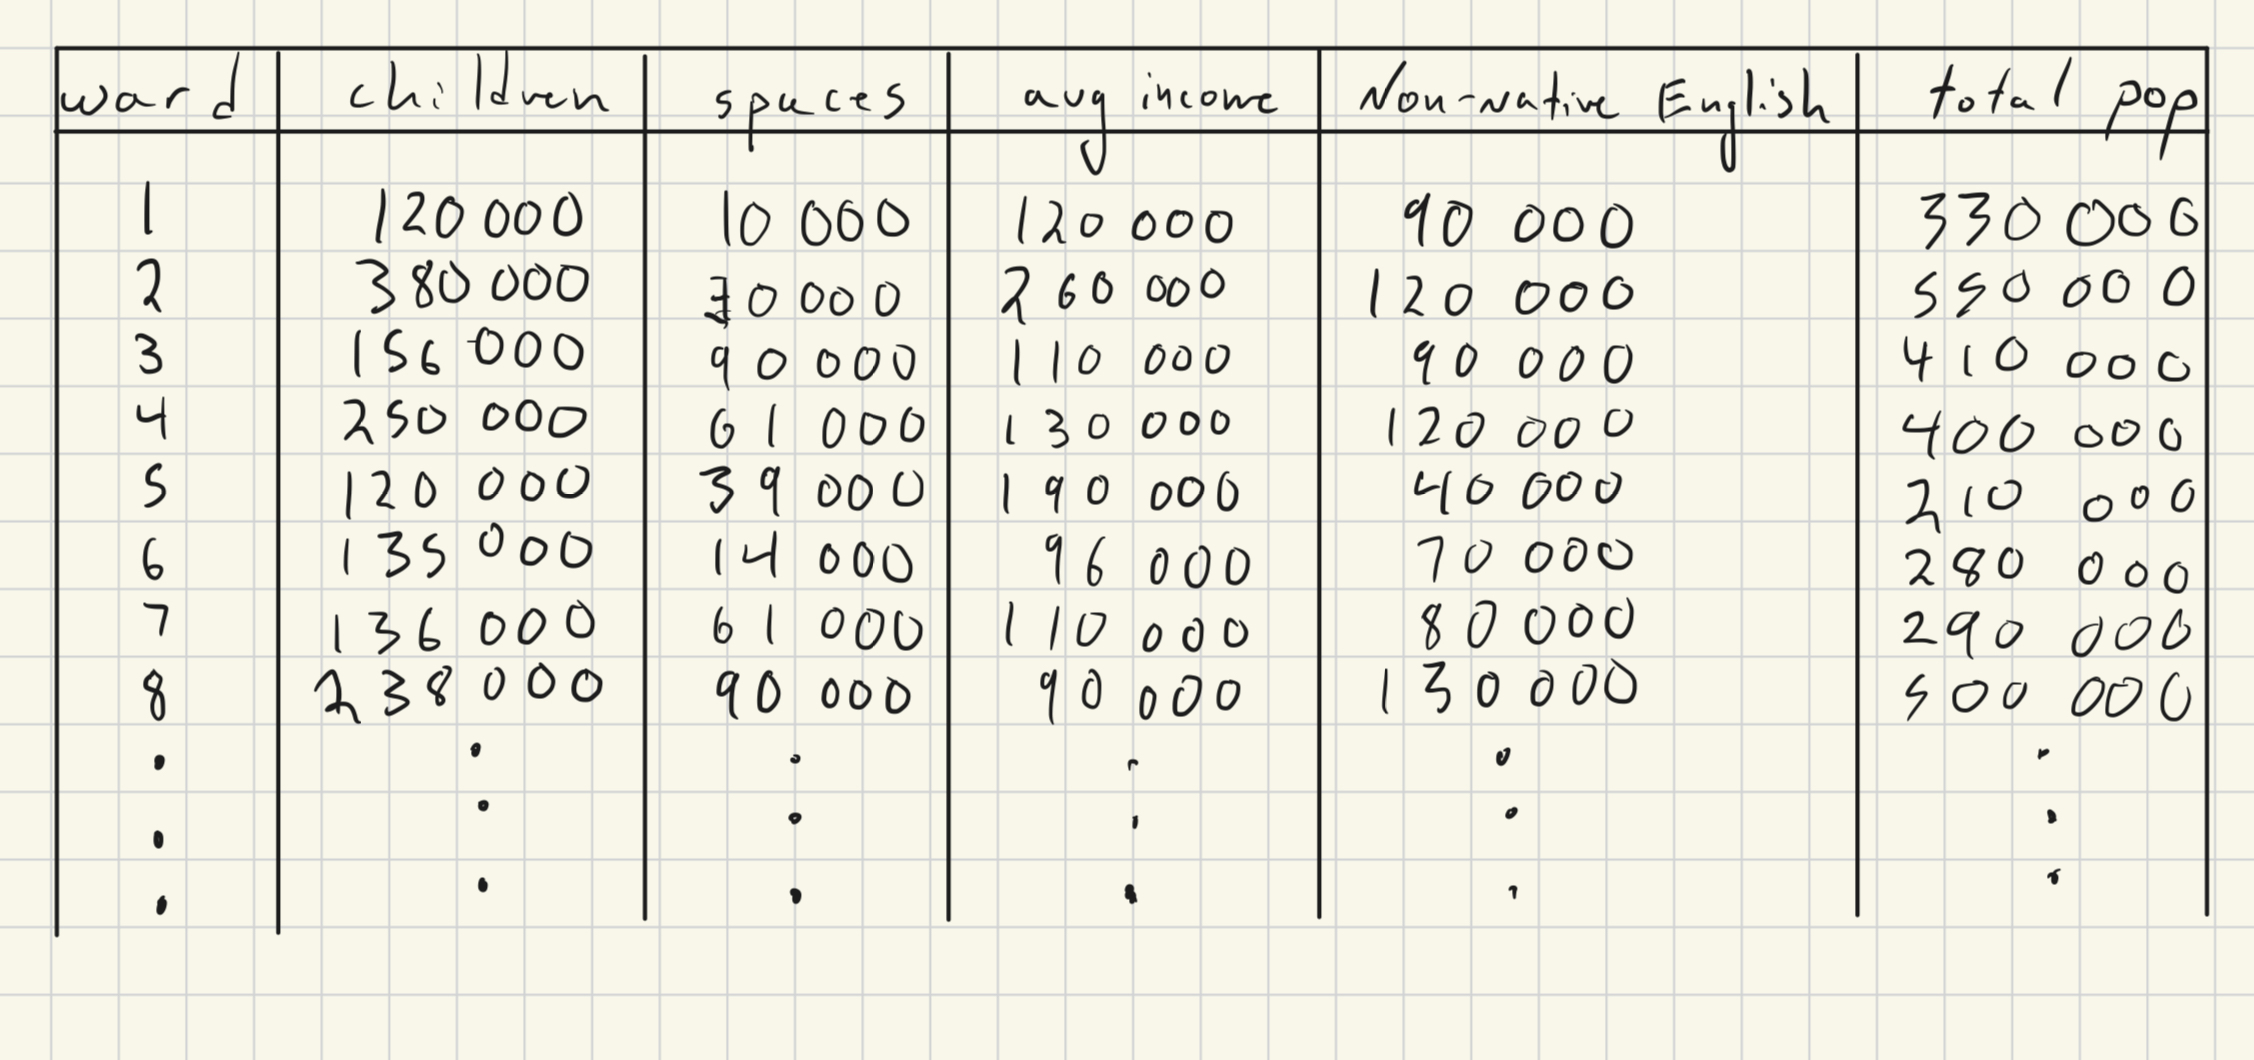 ward children spaces avg income Non-native English total pop
1 120 000 10 000 120 000 90 000 330 000
2 380 000 000 260 000 120 000 550 000
3 156 000 90 000 110 000 90 000 410 000
4 250 000 61 000 130 000 120 000 400 000
5 120 000 39 000 190 000 40 000 210 000
6 135 000 14 000 96 000 70 000 280 000
7 136 000 61 000 110 000 80 000 290 000
8 238 000 90 000 90 000 130 000 500 000
. . . . . .
. . . . . .
. . . . . .